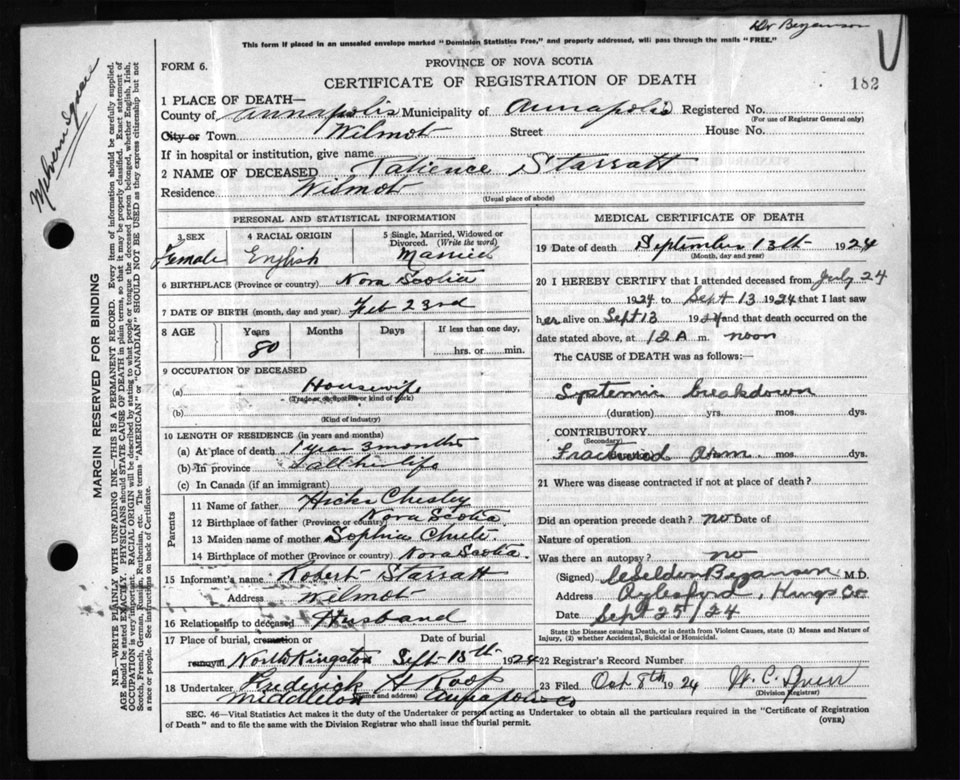 Dr Bezanson
This form if placed in an unsealed envelope marked "Dominion Statistics Free," and properly addressed, will pass through the mails "FREE."
PROVINCE OF NOVA SCOTIA
FORM 6.
CERTIFICATE OF REGISTRATION OF DEATH
182
1 PLACE OF DEATH—
County of Annapolis Municipality of Annapolis Registered No.
(For use of Registrar General only)
City or Town Wilmot Street House No.
If in hospital or institution, give name
2 NAME OF DECEASED Patience Starratt
Residence Wilmot
(Usual place of abode)
PERSONAL AND STATISTICAL INFORMATION
3 SEX 4 RACIAL ORIGIN 5 Single, Married, Widowed or Divorced. (Write the word)
Female English Married
6 BIRTHPLACE (Province or country) Nova Scotia
7 DATE OF BIRTH (month, day and year) Feb 23rd
8 AGE Years Months Days If less than one day,
80 hrs. or min.
9 OCCUPATION OF DECEASED
(a) Housewife
(Trade or occupation or kind of work)
(b)
(Kind of industry)
10 LENGTH OF RESIDENCE (in years and months)
(a) At place of death 1 year 3 months
(b) In province all her life
(c) In Canada (if an immigrant)
Parents
11 Name of father Hicks Chesley
12 Birthplace of father (Province or country) Nova Scotia.
13 Maiden name of mother Sophia Chute
14 Birthplace of mother (Province or country) Nova Scotia.
15 Informant's name Robert Starratt
Address Wilmot
16 Relationship to deceased Husband
17 Place of burial, cremation or removal Date of burial
North Kingston Sept 15th 1924
18 Undertaker Frederick H Roop
(Name and address)
Middleton Annapolis Co
MEDICAL CERTIFICATE OF DEATH
19 Date of death September 13th 1924
(Month, day and year)
20 I HEREBY CERTIFY that I attended deceased from July 24
1924 to Sept 13 1924 that I last saw
her alive on Sept 13 1924 and that death occurred on
date stated above, at 12 A m. noon
The CAUSE OF DEATH was as follows:—
Systemic breakdown
(duration) yrs. mos. dys.
CONTRIBUTORY
(Secondary)
Arm. mos. dys.
21 Where was disease contracted if not at place of death?
Did an operation precede death? no Date of
Nature of operation
Was there an autopsy? no
(Signed) Bezanson M.D.
Address Aylesford, Kings Co
Date Sept 25/24
State the Disease causing Death, or in death from Violent Causes, state (1) Means and Nature of Injury, (2) whether Accidental, Suicidal or Homicidal.
22 Registrar's Record Number
23 Filed Oct 8th 1924 W. C.
(Division Registrar)
SEC. 46—Vital Statistics Act makes it the duty of the Undertaker or person acting as Undertaker to obtain all the particulars required in the "Certificate of Registration
of Death" and to file the same with the Division Registrar who shall issue the burial permit. (OVER)
Melvern Square
MARGIN RESERVED FOR BINDING
N.B.—WRITE PLAINLY WITH UNFADING INK—THIS IS A PERMANENT RECORD. Every item of information should be carefully supplied.
AGE should be stated EXACTLY. PHYSICIANS should STATE CAUSE OF DEATH in plain terms, so that it may be properly classified. Exact statement of
OCCUPATION is very important. RACIAL ORIGIN will be described by stating to what people or tongue the deceased person belonged, whether English, Irish,
Scotch, French, German, Russian, Ruthenian, etc. The terms "AMERICAN" or "CANADIAN" SHOULD NOT BE USED as they express citizenship but not
a race or people. See instructions on back of Certificate.